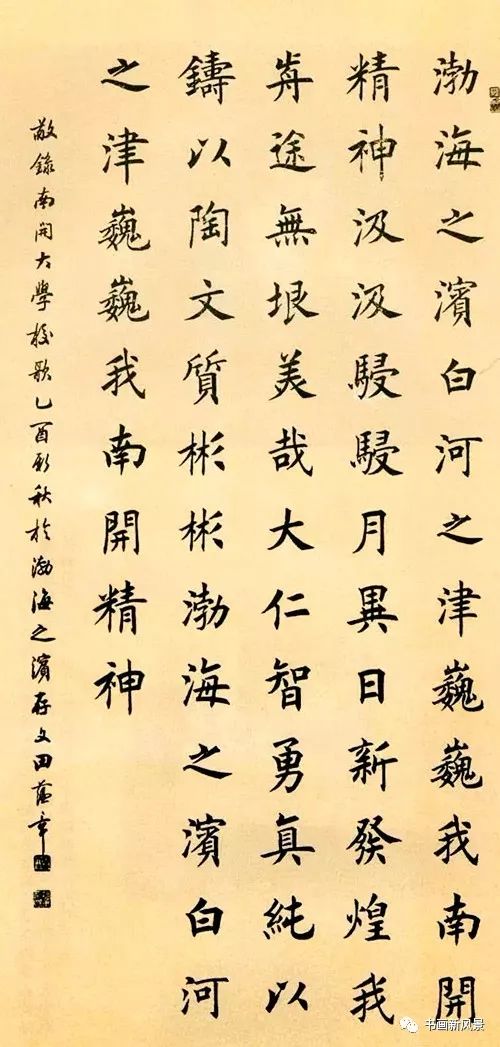 渤海之濱白河之津巍巍我南開
精神汲汲駸駸月異日新發煌我
歬途無垠美哉大仁智勇真純以
鑄以陶文質彬彬渤海之濱白河
之津巍巍我南開精神
敬錄南開大學校歌乙酉新秋於渤海之濱存文田蘊章
书画新风景